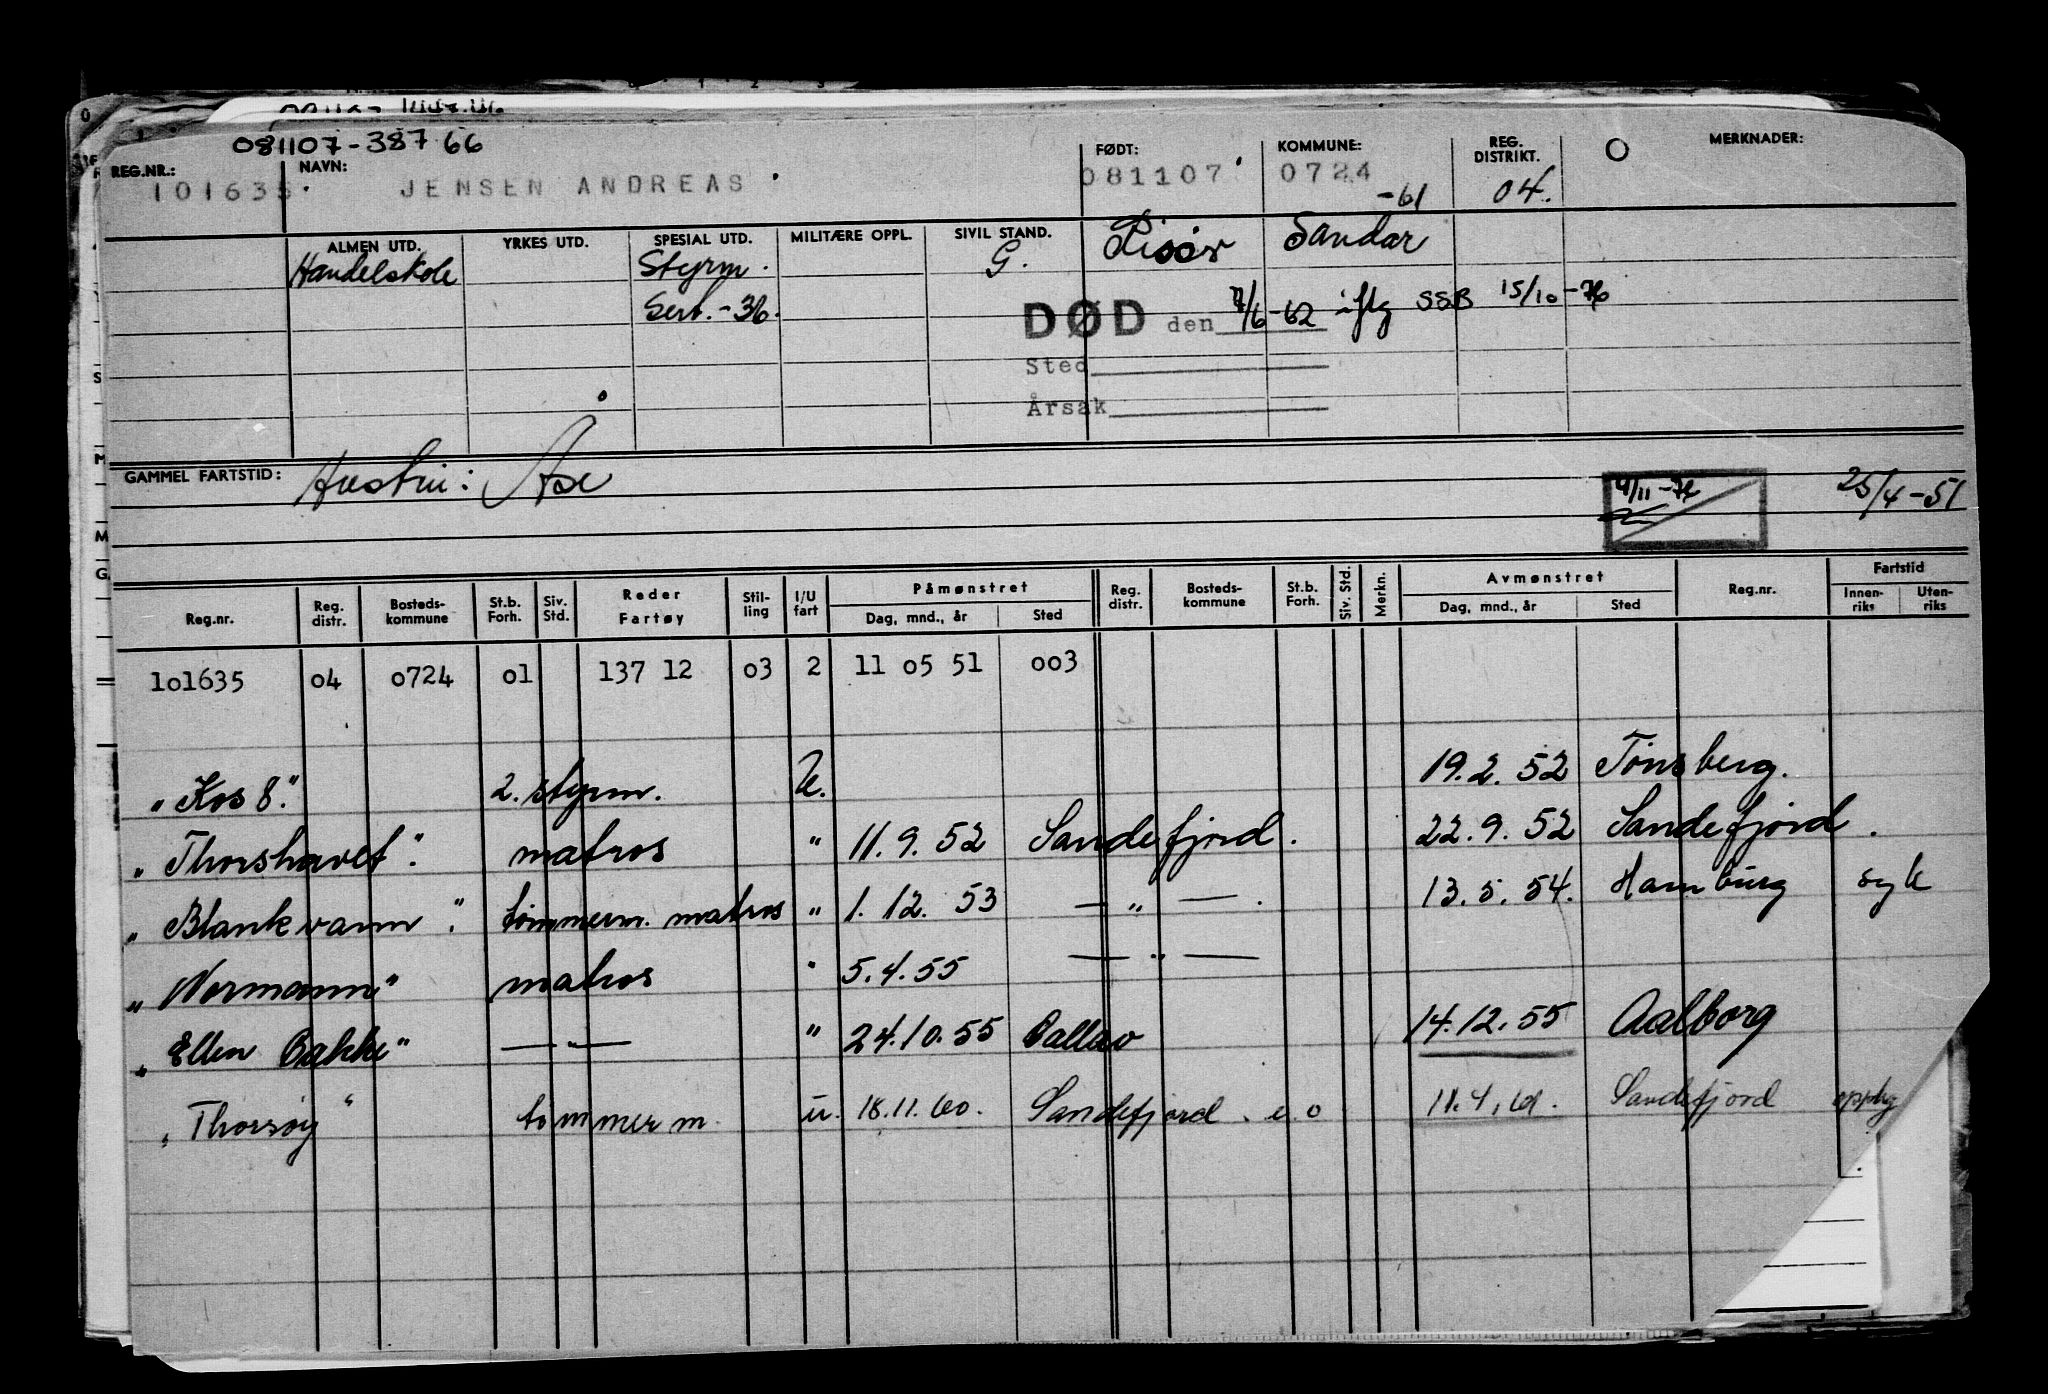 081107-38766
REG.NR.: NAVN: FØDT: KOMMUNE: REG. DISTRIKT. O MERKNADER:
101635. JENSEN ANDREAS. 081107. 0724 -61 04.
ALMEN UTD. YRKES UTD. SPESIAL UTD. MILITÆRE OPPL. SIVIL STAND. Risør Sandar
Handelskole Styrm. G.
Sert. -36.
DØD den 7/6-62 iflg SSB 15/10-76
Sted
Årsak
GAMMEL FARTSTID: Hustru: Åse
25/4-51
Reg.nr. Reg. distr. Bosteds-kommune St.b. Forh. Siv. Std. Reder Fartøy Stil-ling I/U fart Påmønstret Dag, mnd., år Sted Reg. distr. Bosteds-kommune St.b. Forh. Siv. Std. Merkn. Avmønstret Dag, mnd., år Sted Reg.nr. Fartstid Innen-riks Uten-riks
101635 04 0724 01 137 12 03 2 11 05 51 003
"Kos 8." 2. styrm. U. 19.2.52 Tønsberg.
"Thorshavet". matros " 11.9.52 Sandefjord. 22.9.52 Sandefjord.
"Blankvann". tømmerm. matros " 1.12.53 — " — . 13.5.54. Hamburg syk
"Normann" matros " 5.4.55 — " —
"Ellen Bakke" — " — " 24.10.55 Callao 14.12.55 Aalborg
"Thorsøy" tømmerm. u. 18.11.60. Sandefjord. e.o 11.4.61. Sandefjord opplag